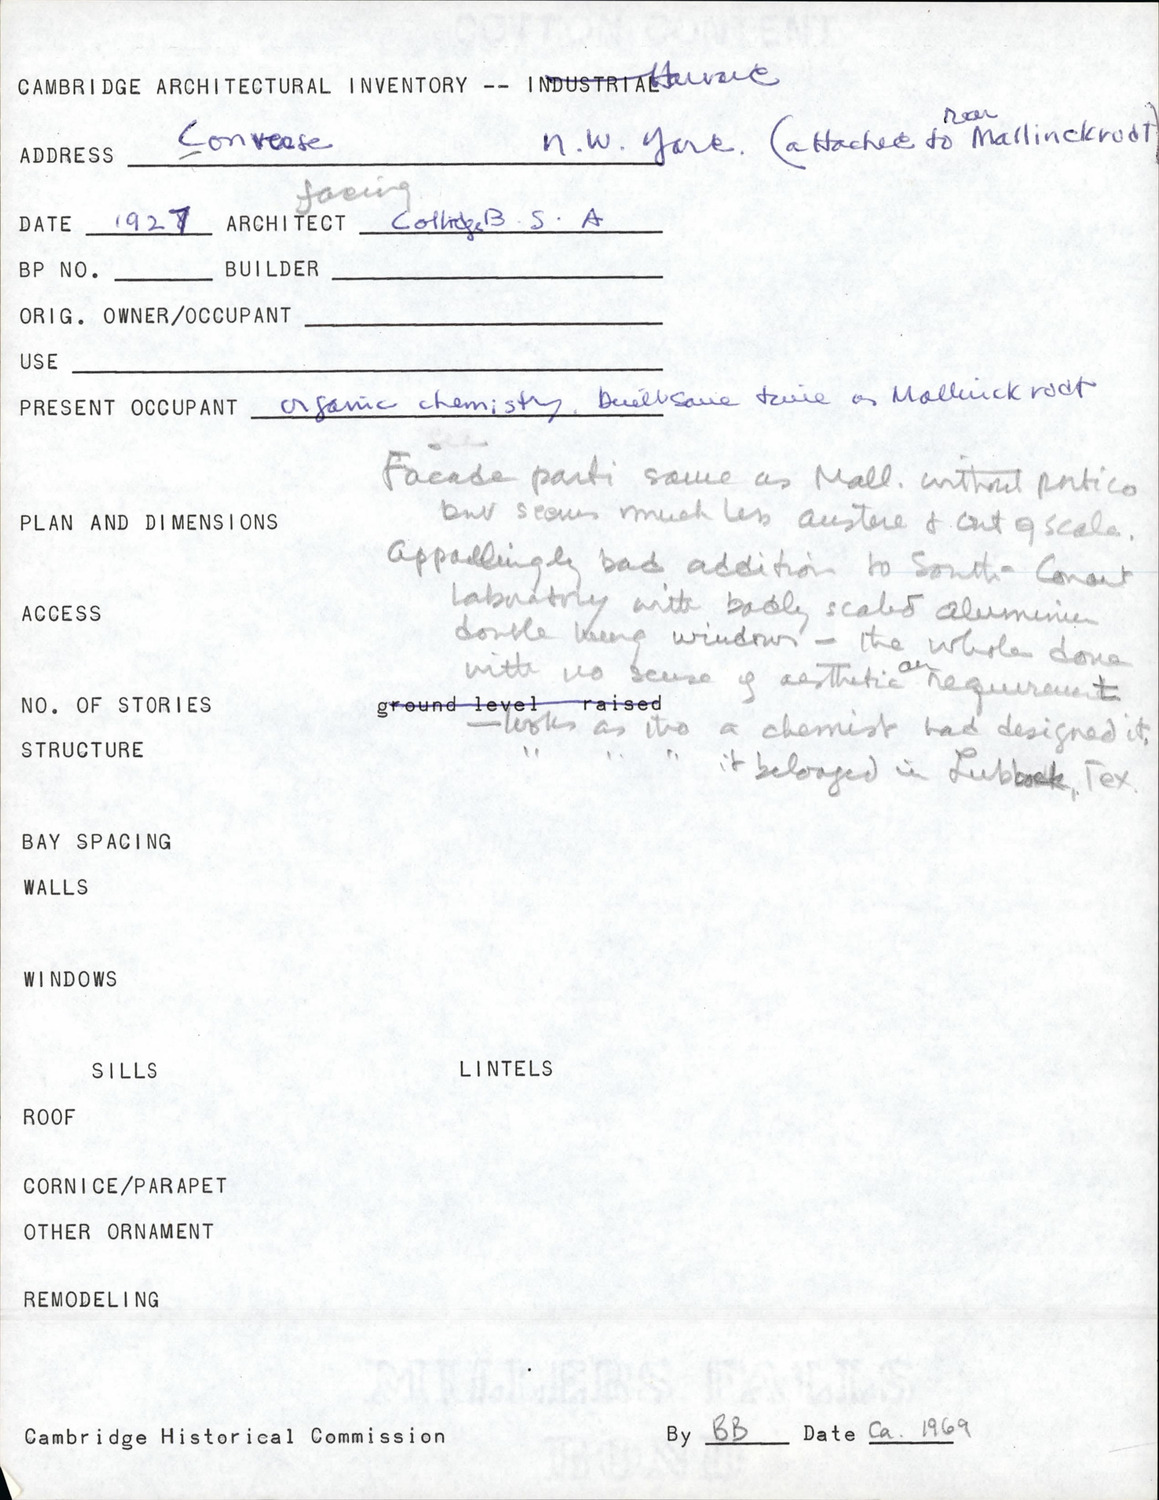 CAMBRIDGE ARCHITECTURAL INVENTORY -- INDUSTRIAL Harvard
rear
ADDRESS Converse N.W. Yard. (attached to Mallinckrodt)
facing
DATE 1927 ARCHITECT Coolidge B S. A
BP NO. BUILDER
ORIG. OWNER/OCCUPANT
USE
PRESENT OCCUPANT organic chemistry. Built same time as Mallinckrodt
Facade parti same as Mall. without portico
but seems much less austere & out of scale.
PLAN AND DIMENSIONS
Appallingly bad addition to South - Conant
Laboratory with badly scaled aluminum
ACCESS
double hung windows - the whole done
with no sense of aesthetic or requirement
NO. OF STORIES ground level raised
- looks as tho a chemist had designed it,
STRUCTURE
" " " it belonged in Lubbock, Tex.
BAY SPACING
WALLS
WINDOWS
SILLS LINTELS
ROOF
CORNICE/PARAPET
OTHER ORNAMENT
REMODELING
MILLERS FALLS
Cambridge Historical Commission By BB Date Ca. 1969